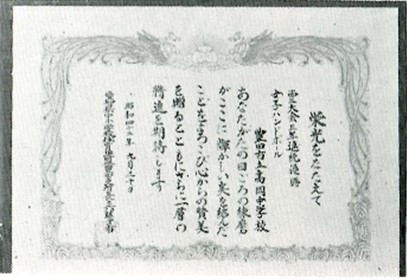 栄光をたたえて
県大会三年連続優勝
女子ハンドボール
豊田市立高岡中学校
あなたがたの日ごろの練磨
がここに輝かしい実を結んだ
ことをよろこび心からの賛美
を贈るとともにさらに一層の
精進を期待します
昭和四十三年九月三十日